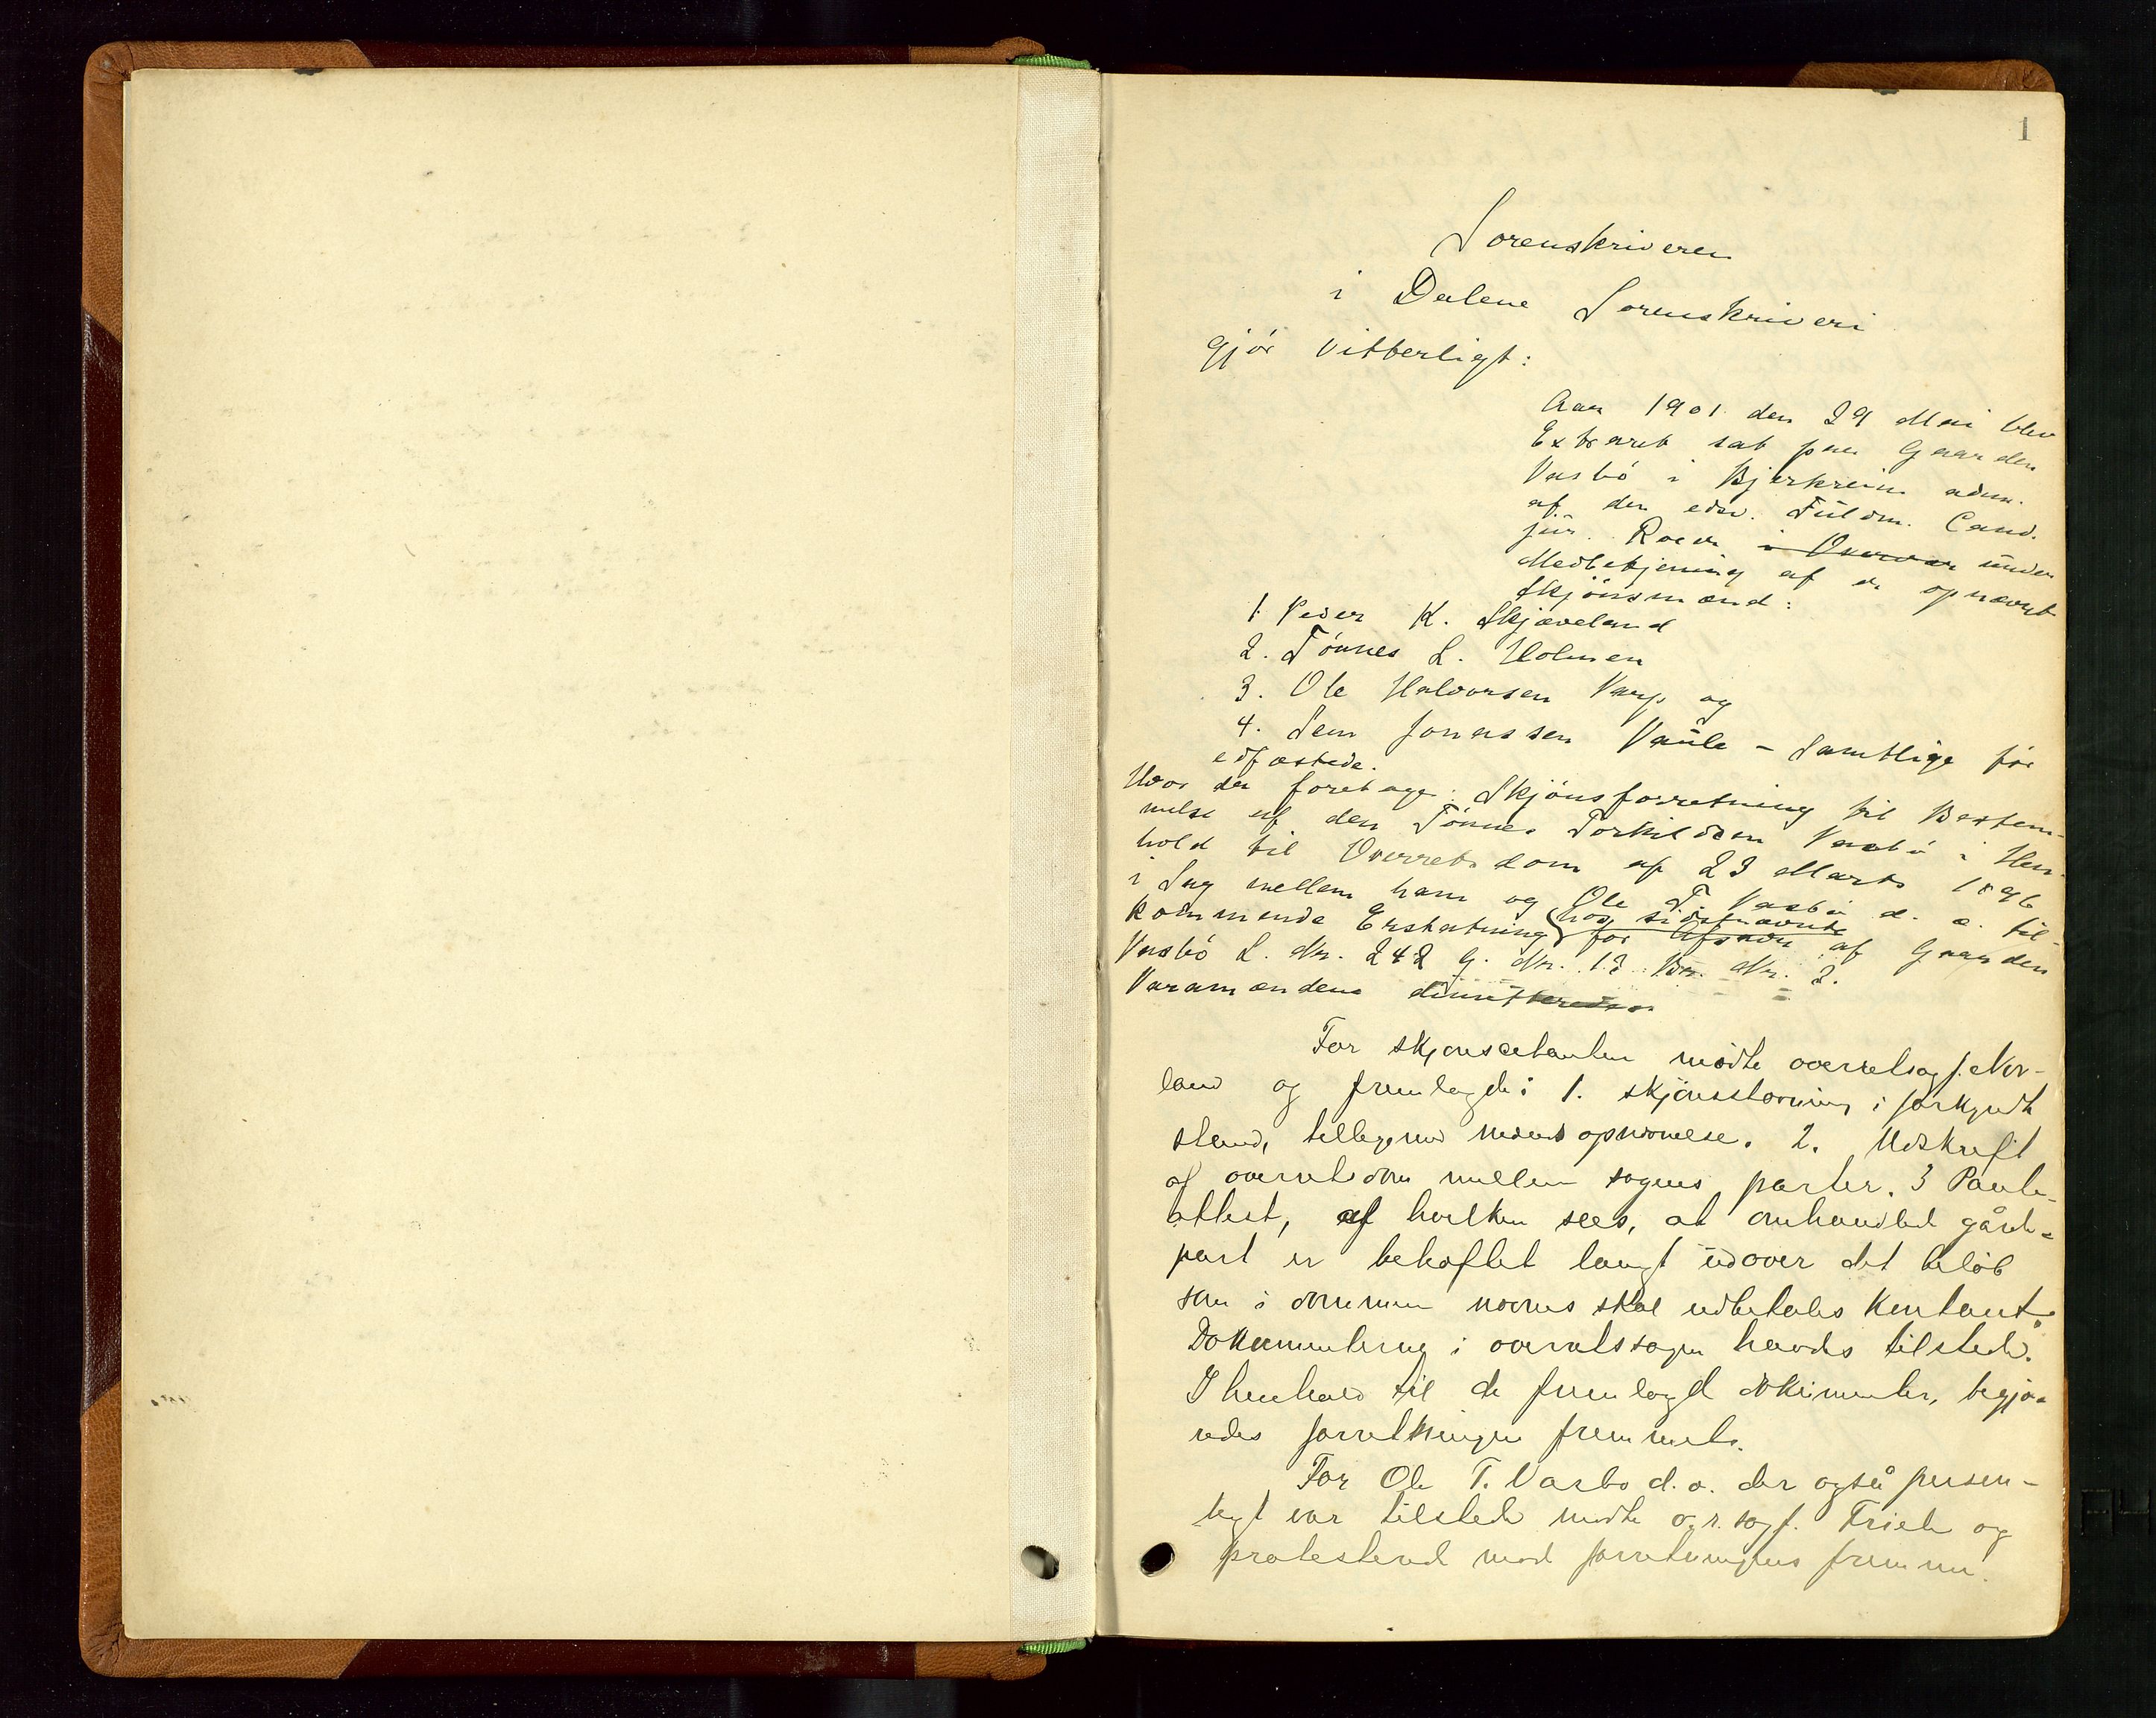 1
Sorenskriveren
i Dalene Sorenskriveri
gjör vitterligt:
Aar 1901 den 29 Mai blev
Extraret sat paa Gaarden
Vasbö i Bjerkreim adm.
af den edsv. Fuldm. Cand.
jur. Roed i Overvær under
Medbetjening af de opnævnte
Skjönsmænd:
1 Peder K. Skjæveland
2. Tönnes L. Holmen
3. Ole Halvorsen Varp og
4. Sem Jonassen Vaule - Samtlige för
edfæstede.
Hvor da foretoges Skjönsforretning til Bestem-
melse af den Tönnes Torkildsen Vasbö i Hen-
hold til Overretsdom af 23 Marts 1896
i Sag mellem ham og Ole T Vasbö d. æ. til-
kommende Erstatning hos sidstnævnte for Afsavn af Gaarden
Vasbö L. Nr. 242 G. Nr. 13 Br. Nr. 2.
Varamændene dimitteredes.
For skjønscitanten mødte overretssagf. Nor-
land og fremlagde: 1. skjønsstævning i forkyndt
stand, tilligemed mændsopnævnelse. 2. Udskrift
af overretsdom mellem sagens parter. 3 Pante-
attest, af hvilken sees, at omhandlede gårds-
part er behæftet langt udover det beløb
som i dommen nævnes skal udbetales kontant.
Dokumenterne i overretssagen havdes tilstede.
I henhold til de fremlagte dokumenter, begjæ-
redes forretningen fremmet.
For Ole T. Vasbø d.æ. der også person-
ligt var tilstede mødte o.r.sagf. Friele og
protesterede mod forretningens fremme.